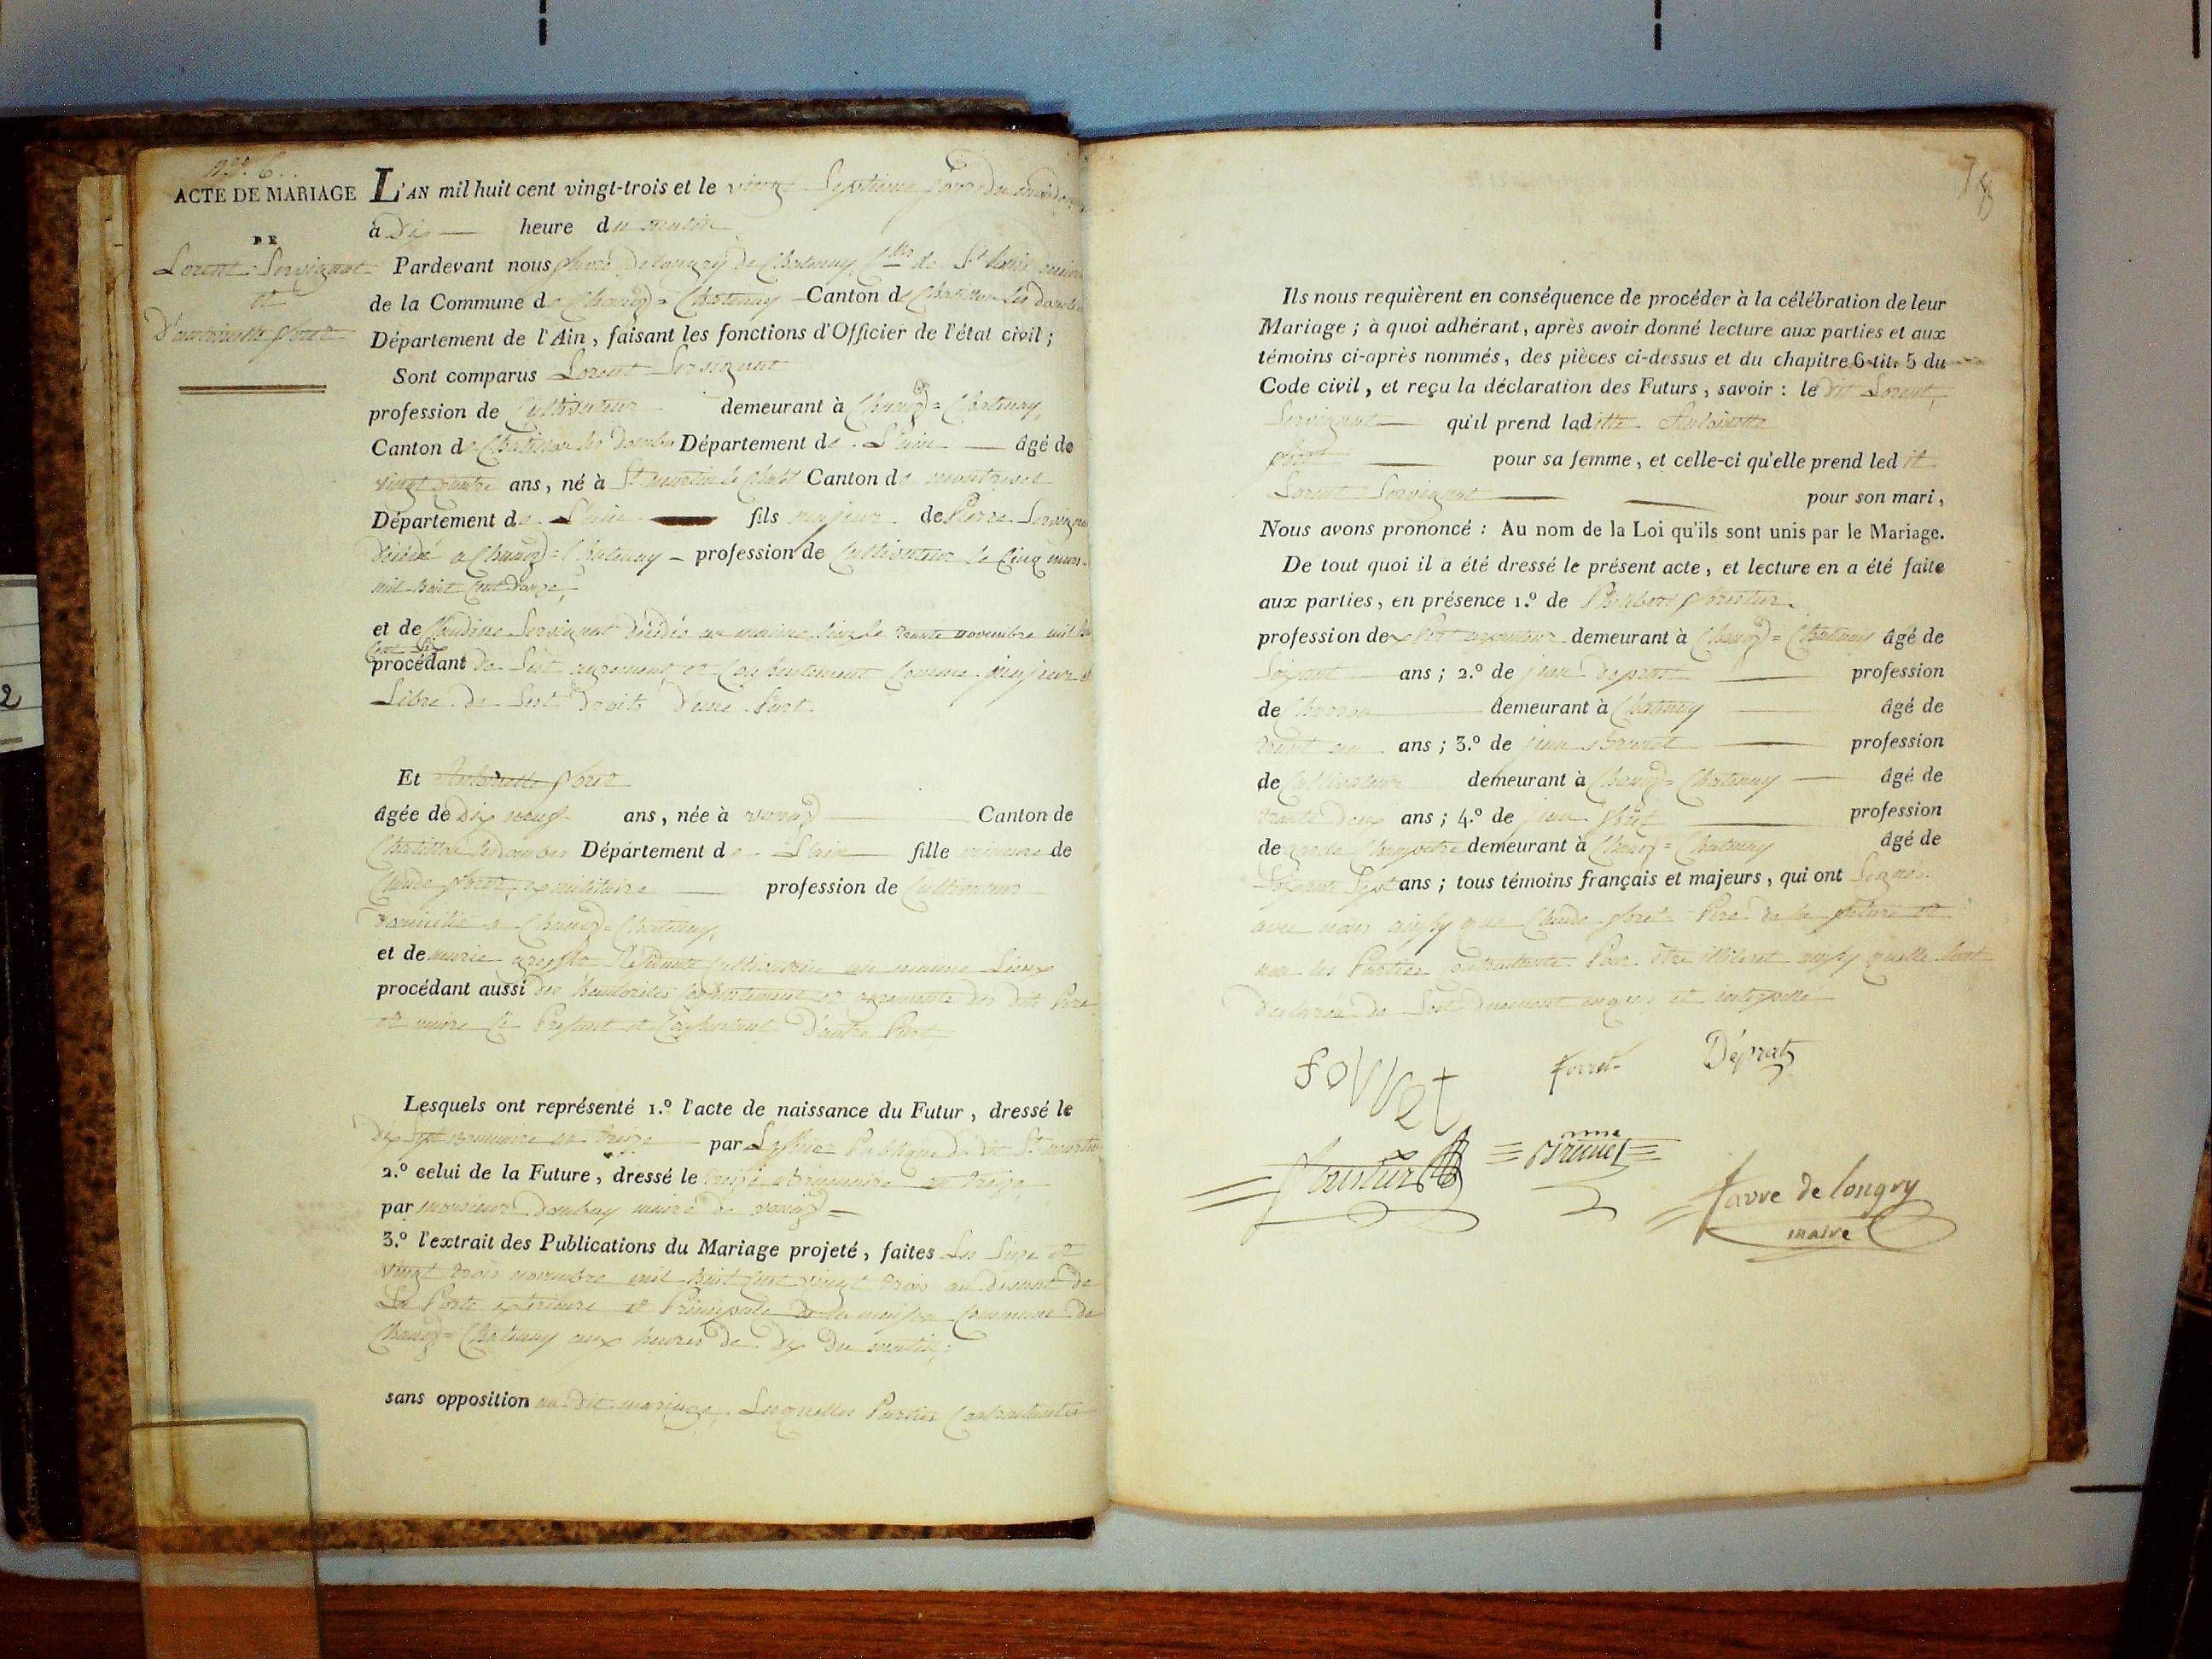 n.º 6.
ACTE DE MARIAGE
DE
Lorent Servignat
et
D'antoinette foret
L'AN mil huit cent vingt-trois et le vingt Septieme jour du
à Dix heure du matin
Pardevant nous favre Delongry de Chatenay de St mair
de la Commune de Chaney = Chatenay Canton de Chatillon les dombe
Département de l'Ain, faisant les fonctions d'Officier de l'état civil;
Sont comparus Lorent Servignat
profession de Cultivateur demeurant à Chaney = Chatenay,
Canton de Chatillon les dombe Département de L'ain âgé de
vingt quatre ans, né à St martin le Chatl Canton de montrevel
Département de L'ain fils majeur de Pierre Servignat
décédé a Chaney = Chatenay profession de Cultivateur le Cinq mars
mil huit Cent douze,
et de Claudine Servignat décédée au maime lieu le trante novembre mil huit
Cent Six
procédant de Sest agrement et Consentement Comme majeur et
Libre de Sest Droits D'une Part.
Et Antoinette foret
âgée de Dix neuf ans, née à Canton de
Chatillon les dombes Département de L'ain fille mineure de
Claude foret, ex militaire profession de Cultivateur
domicilié a Chaney = Chatenay,
et de marie Résidante Cultivatrice au maime Lieux
procédant aussi des hautorites Consentement et agrements des dits Pere
et maire Ci Presant et Consentant D'autre Part
Lesquels ont représenté 1.º l'acte de naissance du Futur, dressé le
Dix Sept brumaire an treize par L'officier Publique du dit St martin
2.º celui de la Future, dressé le treize brumaire an treize
par monsieur maire de
3.º l'extrait des Publications du Mariage projeté, faites Les Seize et
vingt trois novembre mil huit Cent vingt trois au devant de
La Porte exterieure et Principale de la maison Commune de
Chaney = Chatenay aux heures de dix du matin,
sans opposition au dit mariage. Lesquelles Parties Contractantes
78
Ils nous requièrent en conséquence de procéder à la célébration de leur
Mariage; à quoi adhérant, après avoir donné lecture aux parties et aux
témoins ci-après nommés, des pièces ci-dessus et du chapitre 6 tit. 5 du
Code civil, et reçu la déclaration des Futurs, savoir: le dit Lorent,
Servignat qu'il prend laditte Antoinette
foret pour sa femme, et celle-ci qu'elle prend ledit
Lorent Servignat pour son mari,
Nous avons prononcé: Au nom de la Loi qu'ils sont unis par le Mariage.
De tout quoi il a été dressé le présent acte, et lecture en a été faite
aux parties, en présence 1.º de Philibert
profession de demeurant à Chaney = Chatenay âgé de
Soixante ans; 2.º de jean deprat profession
de Charron demeurant à Chatenay âgé de
trent un ans; 3.º de jean Brunet profession
de Cultivateur demeurant à Chaney = Chatenay âgé de
trante deux ans; 4.º de jean foret profession
de garde Champetre demeurant à Chaney = Chatenay âgé de
Soixante Sept ans; tous témoins français et majeurs, qui ont Signés.
avec nous ainssy que Claude foret Pere de la future et
non les Parties Contractante Pour être illiteret ainssy quelle Sont
Declarée de Sest Duement enquis et interpellé
foret Déprat
Brunet
favre de longry
maire